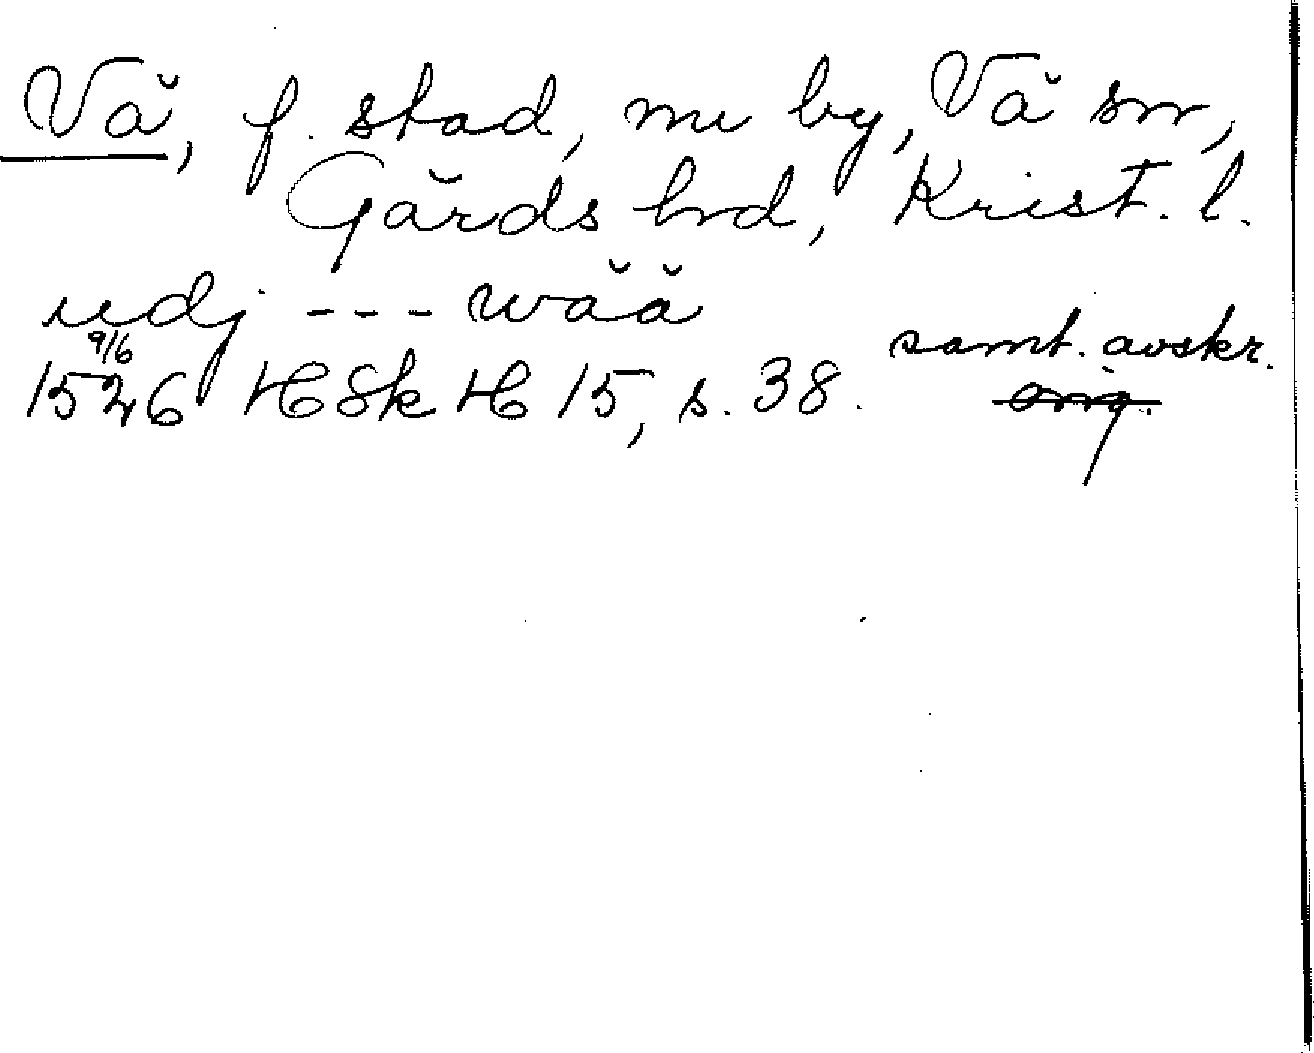 Vå, f. stad, nu by, Vå sn,
Gärds hd, Krist. l.
udj --- wåå
samt. avskr.
1526 9/6 HSkH 15, s. 38. orig.